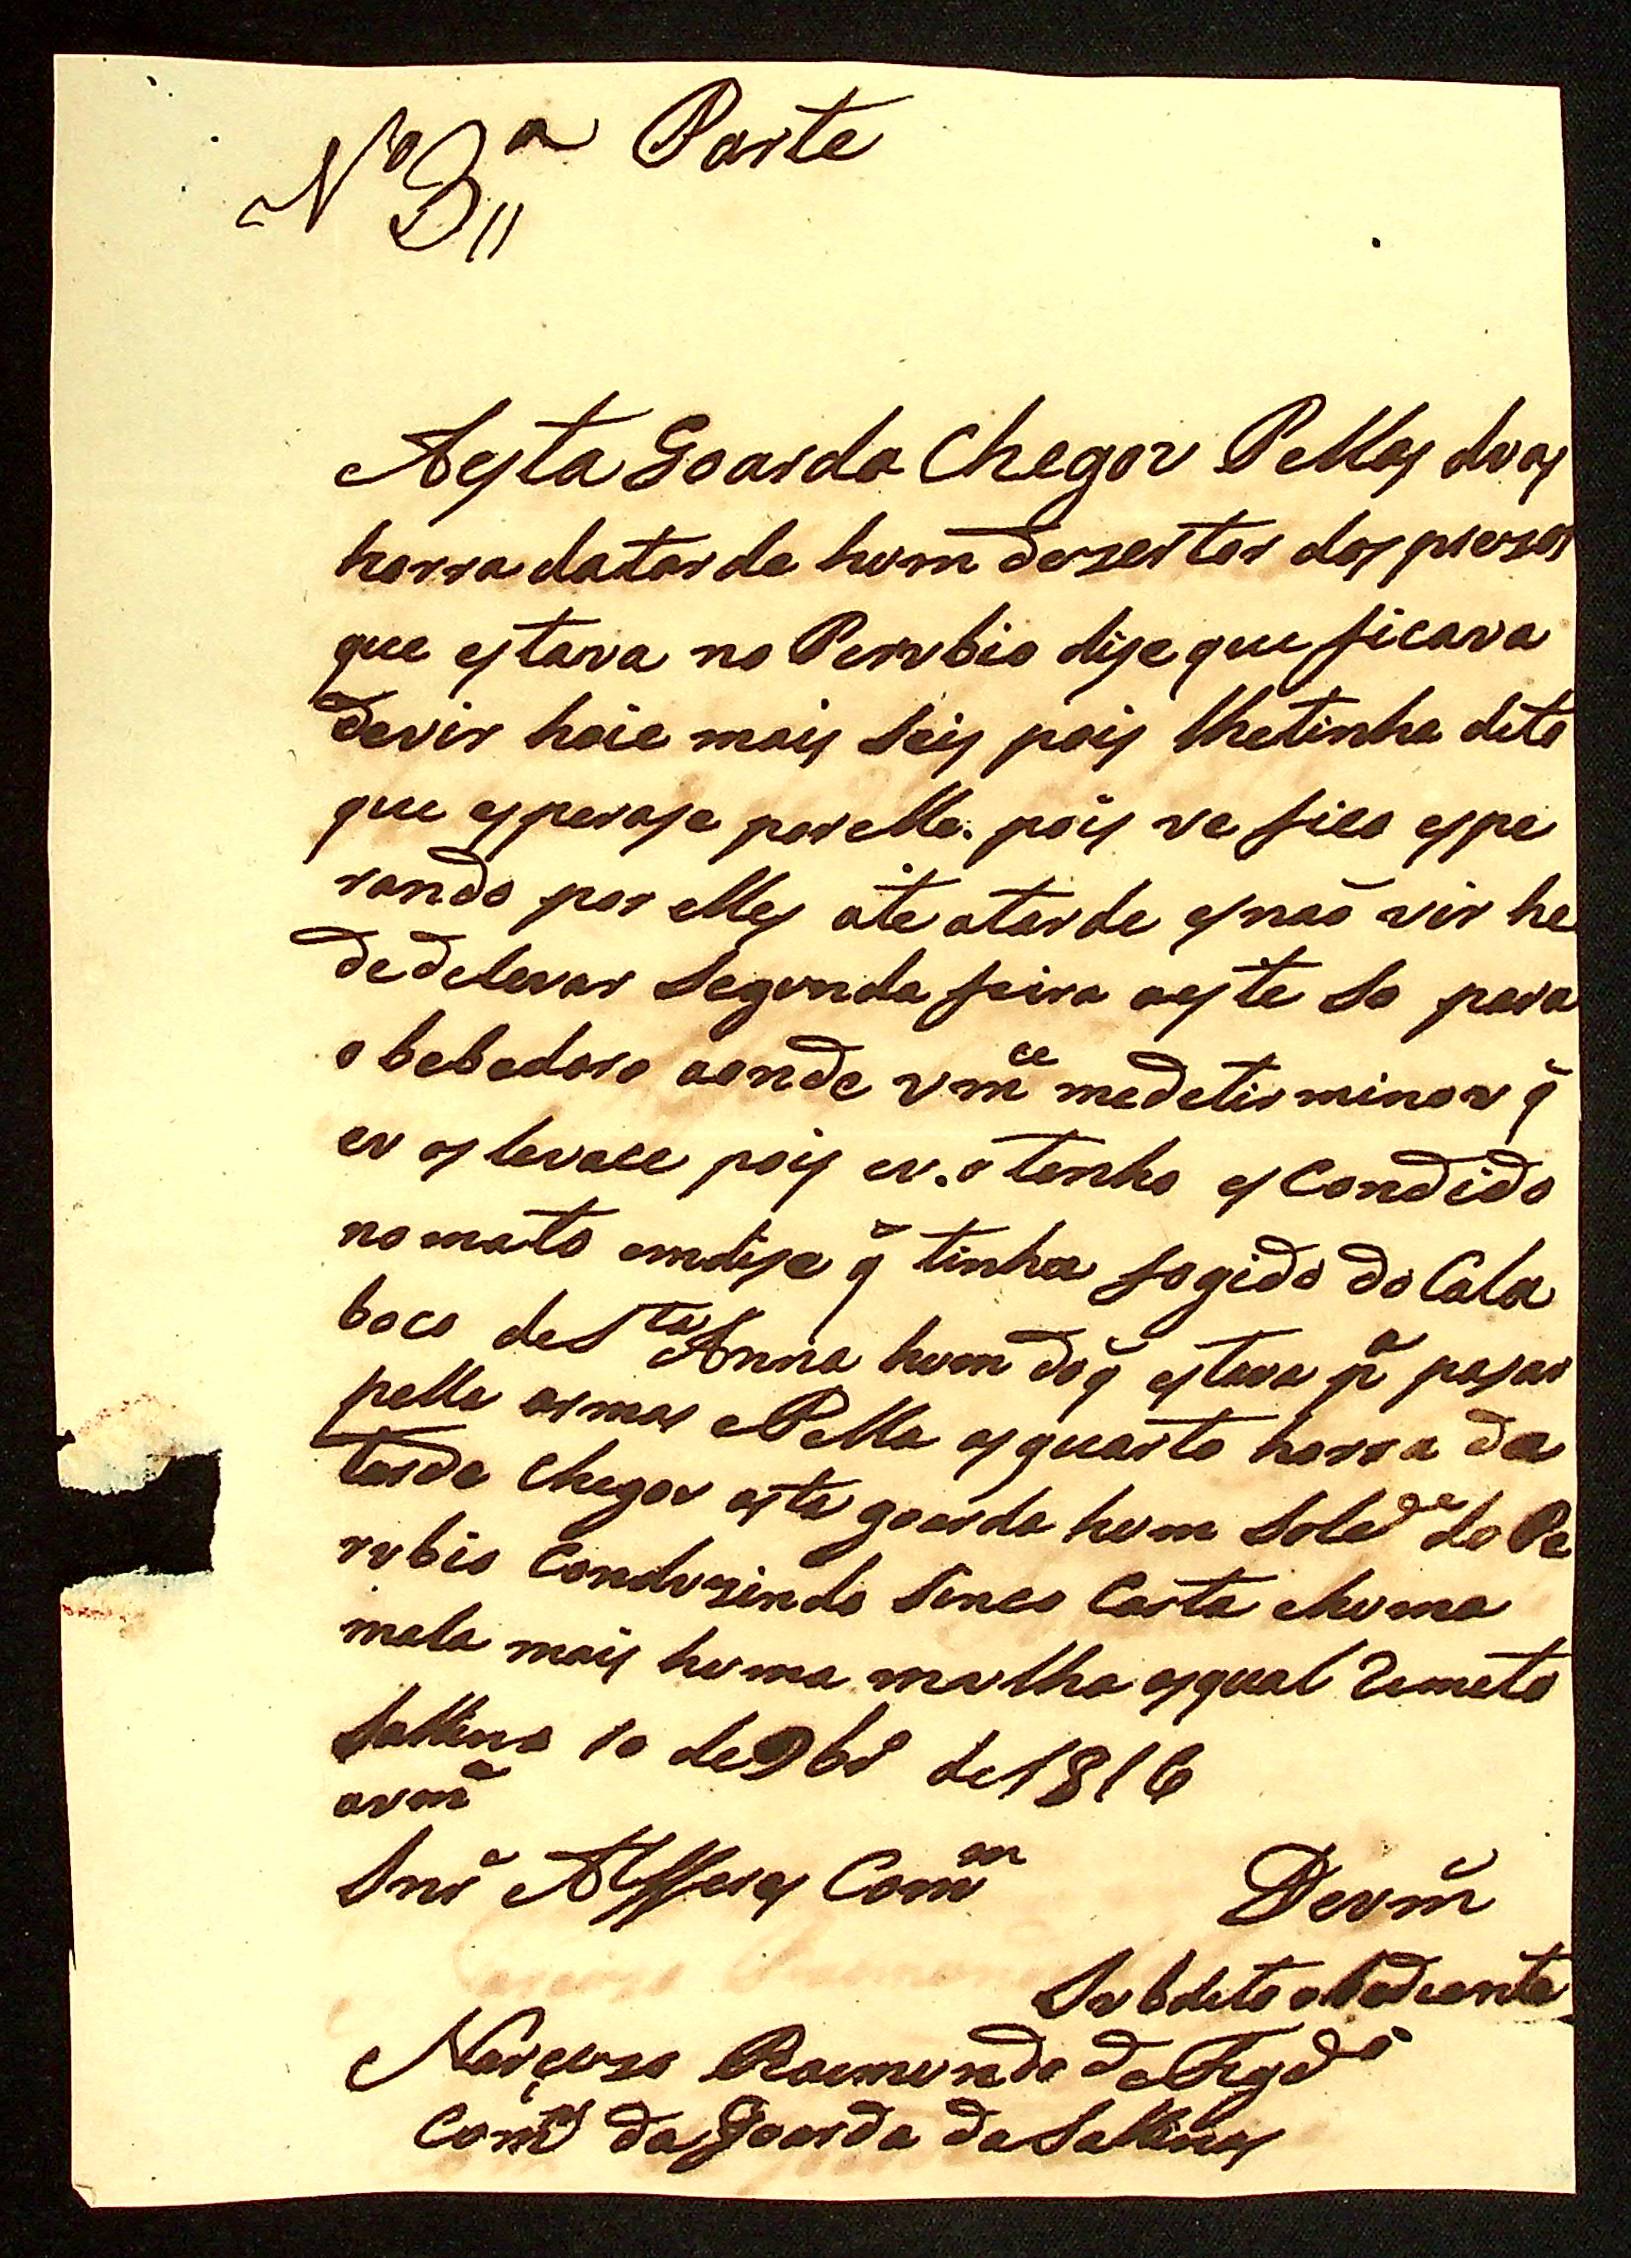 Nº 3ª Parte
Aesta Goarda Chegou Pellas duas
horra datarde hum dezertor dos prezos
que estava no Perubio dise que ficava
devir hoie mais Seis pois lhetinha dito
que esperase porelle. pois ve fico espe
rando por elles ate atarde esnaõ vir he
dedelevar Segunda feira aeste So para
obebedoro aonde vm.ce medetirminou q̃
eu oslevace pois eu.o tenho escondido
nomato emdise q̃ tinha fogido do Cala
boco deSta Anna hum doq̃ estava pª pasar
pella armas ePella asquarto horra da
tarde chegou esta goarda hum Soldº do Pe
rubio Conduzindo Sinco Carta ehuma
mala mais huma malha asqual Remeto
Sallina 10 de 9bro de 1816
avm.ce
Snr Alfferes Comm
Devm.ce
Subdito obediente
Narçuzo Raemundo de Figdº
Comt da Goarda da Sallinas